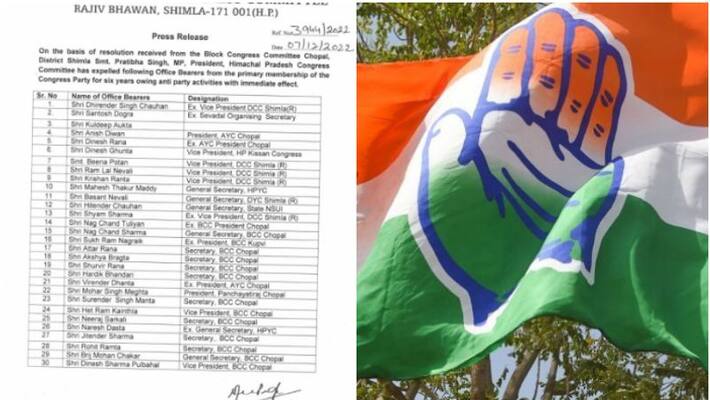 RAJIV BHAWAN, SHIMLA-171 001(H.P.)
Press Release
Ref. No. 3944/2022
Date 07/12/2022
On the basis of resolution received from the Block Congress Committee Chopal,
District Shimla Smt. Pratibha Singh, MP, President, Himachal Pradesh Congress
Committee has expelled following Office Bearers from the primary membership of the
Congress Party for six years owing anti party activities with immediate effect.
Sr. No Name of Office Bearers Designation
1 Shri Dhirender Singh Chauhan Ex. Vice President DCC Shimla(R)
2. Shri Santosh Dogra Ex. Sevadal Organising Secretary
3. Shri Kuldeep Aukta
4. Shri Anish Diwan President, AYC Chopal
5 Shri Dinesh Rana Ex. AYC President Chopal
6 Shri Dinesh Ghunta Vice President, HP Kissan Congress
7 Smt. Beena Potan Vice President, DCC Shimla (R)
8 Shri Ram Lal Nevali Vice President, DCC Shimla (R)
9 Shri Krishan Ranta Vice President, DCC Shimla (R)
10 Shri Mahesh Thakur Maddy General Secretary, HPYC
11 Shri Basant Nevali General Secretary, DYC Shimla (R)
12 Shri Hitender Chauhan General Secretary, State NSUI
13 Shri Shyam Sharma Ex. Vice President, DCC Shimla (R)
14 Shri Nag Chand Tuliyan Ex. BCC President Chopal
15 Shri Nag Chand Sharma General Secretary, BCC Chopal
16 Shri Sukh Ram Nagraik Ex. President, BCC Kupvi
17 Shri Attar Rana Secretary, BCC Chopal
18 Shri Akshya Bragta Secretary, BCC Chopal
19 Shri Shurvir Rana Secretary, BCC Chopal
20 Shri Hardik Bhandari Secretary, BCC Chopal
21 Shri Virender Dhanta Ex. President, AYC Chopal
22 Shri Mohar Singh Meghta President, Panchayatiraj Chopal
23 Shri Surender Singh Manta Secretary, BCC Chopal
24 Shri Het Ram Kainthla Vice President, BCC Chopal
25 Shri Neeraj Sarkali Secretary, BCC Chopal
26 Shri Naresh Dasta Ex. General Secretary, HPYC
27 Shri Jitender Sharma Secretary, BCC Chopal
28 Shri Rohit Ramta Secretary, BCC Chopal
29 Shri Brij Mohan Chakar General Secretary, BCC Chopal
30 Shri Dinesh Sharma Pulbahal Vice President, BCC Chopal